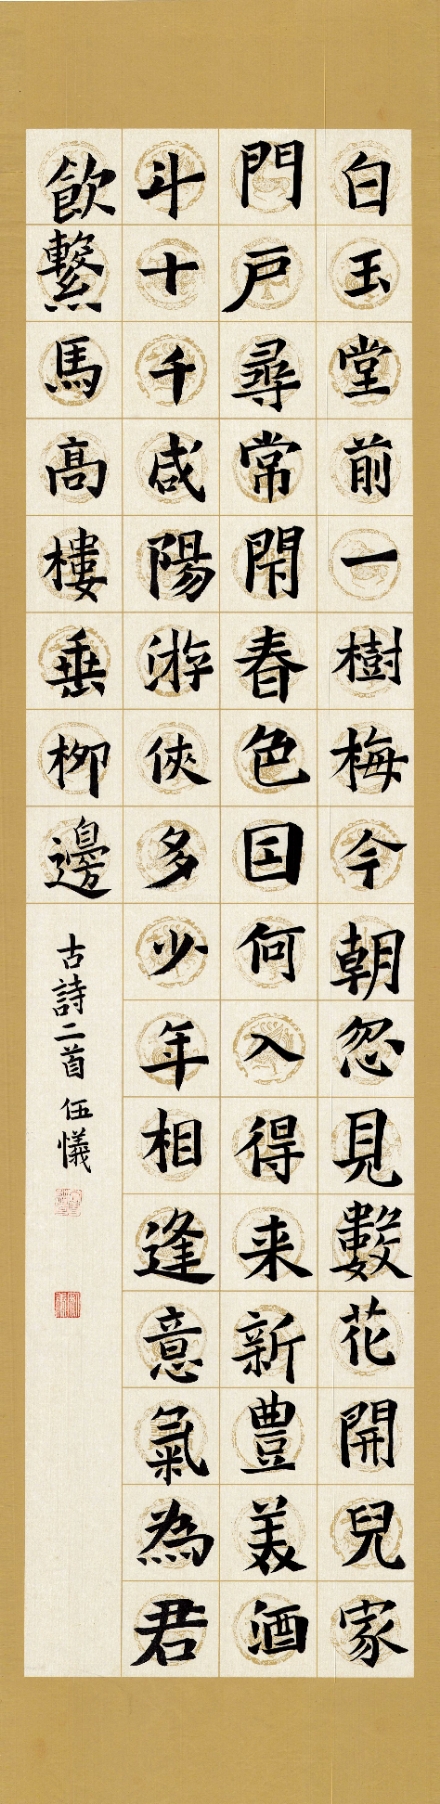 白玉堂前一樹梅今朝忽見數花開兒家
門戶尋常閇春色囙何入得来新豊美酒
斗十千咸陽游俠多少年相逢意氣為君
飲繫馬高樓垂柳邊
古詩二首 伍